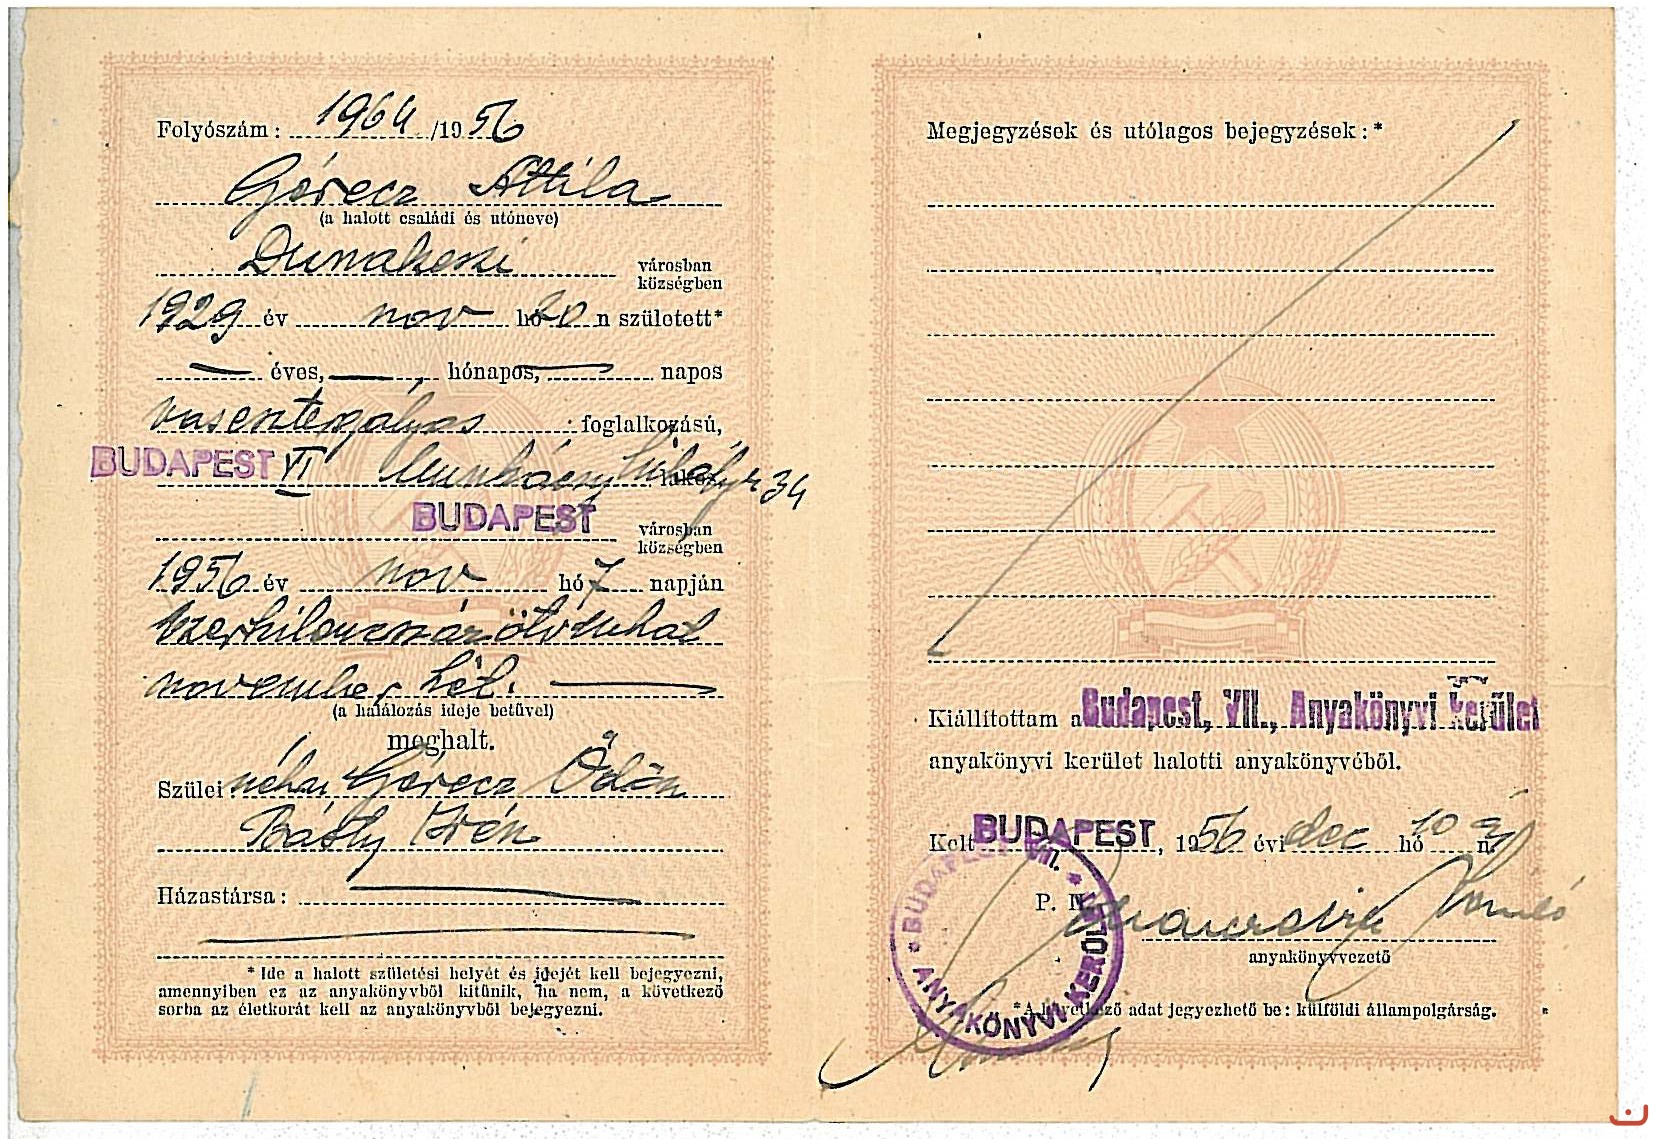 Folyószám: 1964/1956
Gérecz Attila
(a halott családi és utóneve)
Dunakeszi városban
községben
1929 év nov hó 20 n született*
éves, hónapos, napos
vasesztergályos foglalkozású,
BUDAPEST VI Munkácsy Mihály u 34 lakos
BUDAPEST városban
községben
1956 év nov hó 7 napján
Ezerkilencszázötvenhat
november hét.
(a halálozás ideje betűvel)
meghalt.
Szülei néhai Gérecz Ödön
Báthy Irén
Házastársa:
* Ide a halott születési helyét és idejét kell bejegyezni,
amennyiben ez az anyakönyvből kitűnik, ha nem, a következő
sorba az életkorát kell az anyakönyvből bejegyezni.
Megjegyzések és utólagos bejegyzések:*
Kiállítottam a Budapest, VII., Anyakönyvi kerület
anyakönyvi kerület halotti anyakönyvéből.
Kelt BUDAPEST, 1956 évi dec hó 10 n.
P. H.
anyakönyvvezető
* BUDAPEST VII. * ANYAKÖNYVI KERÜLET
*A következő adat jegyezhető be: külföldi állampolgárság.